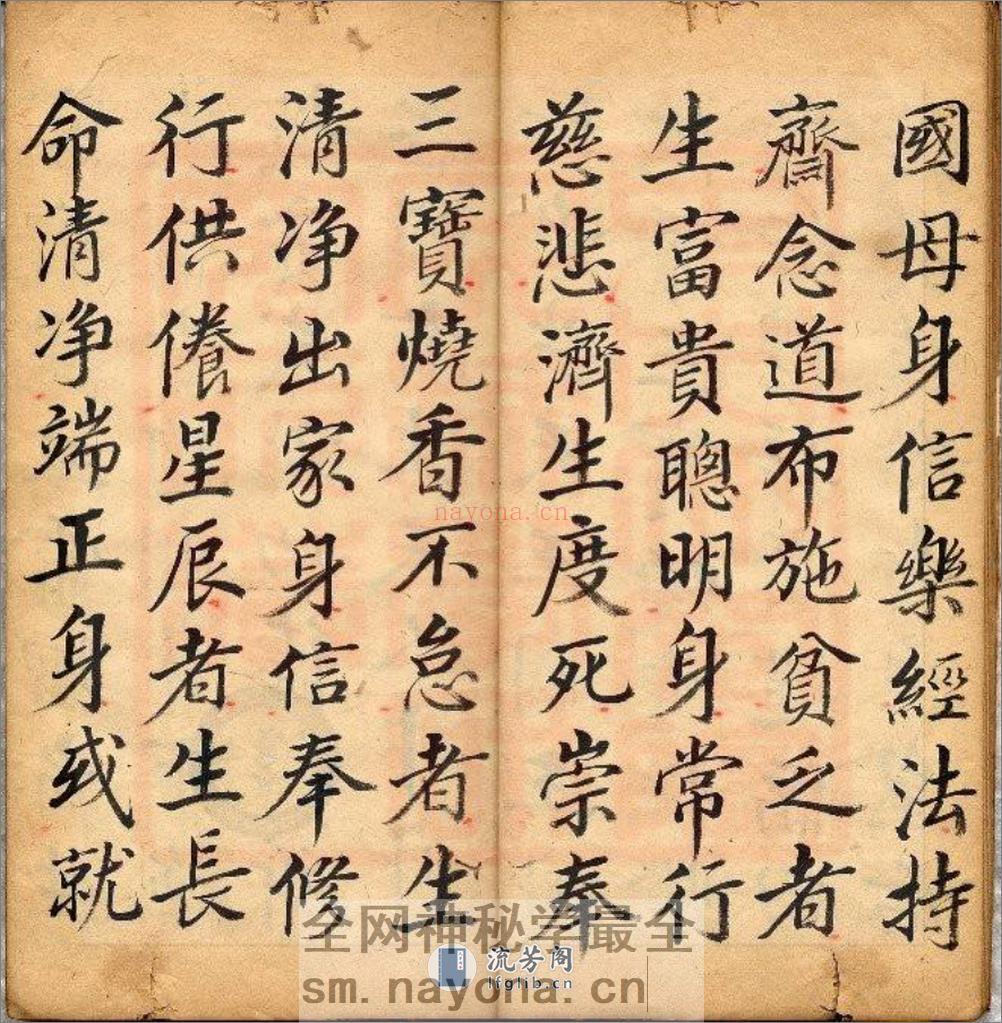 國母身信樂經法持
齋念道布施貧乏者
生富貴聰明身常行
慈悲濟生度死崇奉
三寶燒香不怠者生
清净出家身信奉修
行供養星辰者生長
命清净端正身或就
nayona.cn
全网神秘学最全
流芳阁
lfglib.cn
sm.nayona.cn